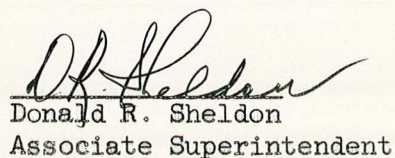 D.R. Sheldon
Donald R. Sheldon
Associate Superintendent